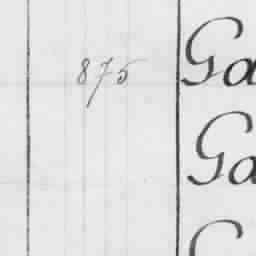 875 Ga
Ga
G